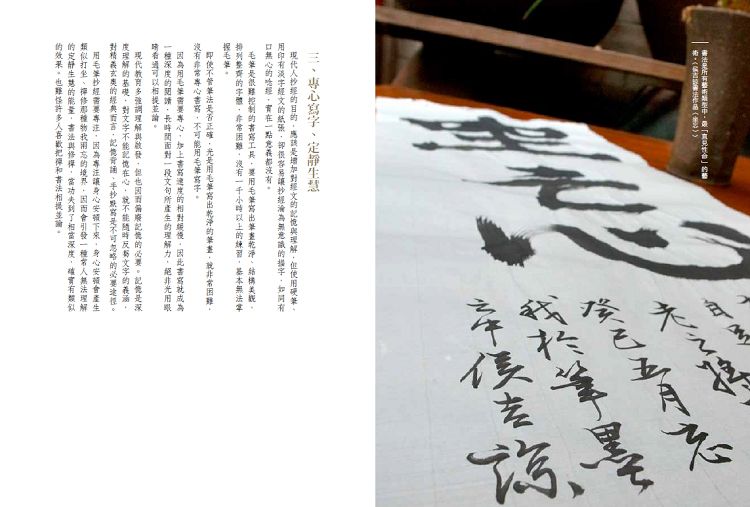 書法是所有藝術類型中，最「直見性命」的藝
術。（侯吉諒書法作品〈墨忘〉）
墨忘
老之
癸巳五月忘
我於筆墨
侯吉諒
三、專心寫字、定靜生慧
現代人抄經的目的，應該是增加對經文的記憶與理解，但使用硬筆、
用印有淡字經文的紙張，卻很容易讓抄經淪為無意識的描字，如同有
口無心的唸經，實在一點意義都沒有。
毛筆是很難控制的書寫工具，要用毛筆寫出筆畫乾淨、結構美觀、
排列整齊的字體，非常困難，沒有一千小時以上的練習，基本無法掌
握毛筆。
即使不管筆法是否正確，光是用毛筆寫出乾淨的筆畫，就非常困難，
沒有非常專心書寫，不可能用毛筆寫字。
因為用毛筆需要專心，加上書寫速度的相對緩慢，因此書寫就成為
一種深度的閱讀，長時間面對一段文句所產生的理解力，絕非光用眼
睛看過可以相提並論。
現代教育多強調理解與啟發，但也因而偏廢記憶的必要。記憶是深
度理解的基礎，對文字不能記憶在心，就不能隨時反芻文字的義涵，
對精義玄奧的經典而言，記憶背誦、手抄點寫是不可忽略的必要途徑。
用毛筆抄經需要專注，因為專注讓身心安頓下來，身心安頓會產生
類似打坐、禪修那種物我兩忘的境界，因而會引發一種常人無法理解
的定靜生慧的能量，書法與修禪，當功夫到了相當深度，確實有類似
的效果。也難怪許多人喜歡把禪和書法相提並論。